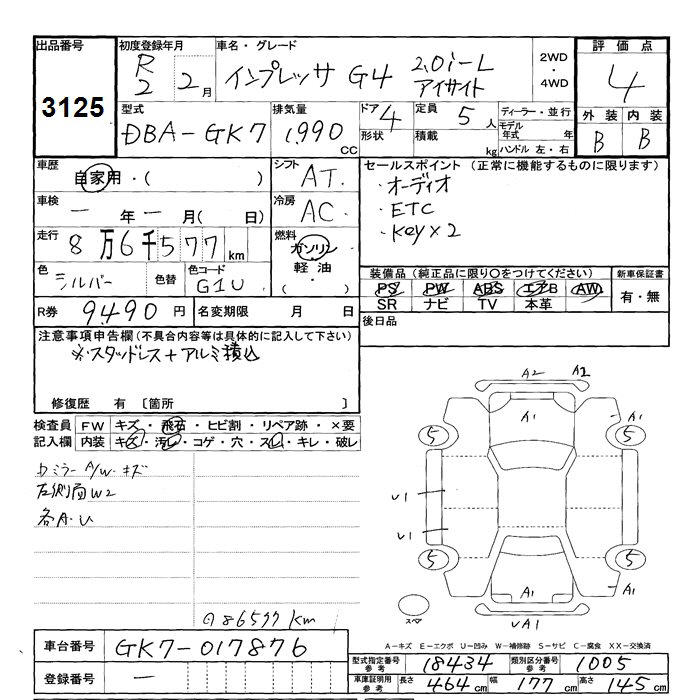 出品番号 初度登録年月 車名・グレード 2WD・4WD 評価点
3125 R2 2月 インプレッサ G4 2.0i-L アイサイト 4
型式 排気量 ドア 形状 定員 積載 ディーラー・並行 外装 内装
DBA-GK7 1,990 CC 4 5人 kg モデル年式 年 ハンドル 左・右 B B
車歴 自家用・( ) シフト AT. セールスポイント (正常に機能するものに限ります)
車検 一年一月(日) 冷房 AC. ・オーディオ
・ETC
・key×2
走行 8万6千577km 燃料 ガソリン 軽油・( )
色 シルバー 色替 色コード G1U 装備品 (純正品に限り○をつけてください) 新車保証書
PS PW ABS エアB AW 有・無
SR ナビ TV 本革
R券 9490円 名変期限 月 日 後日品
注意事項申告欄 (不具合内容等は具体的に記入して下さい)
※スタッドレス+アルミ積込
修復歴 有 〔箇所 〕
検査員 FW キズ・飛石・ヒビ割・リペア跡・×要
記入欄 内装 キズ・汚レ・コゲ・穴・スレ・キレ・破レ
ミラー A/W キズ
左側面W2
各A.U
86577km
A2 A2
A1 A1
5 5
U1
U1
5 5
A1 A1
スペア UA1
A-キズ E-エクボ U-凹み W-補修跡 S-サビ C-腐食 XX-交換済
車台番号 GK7-017876
登録番号 一
型式指定番号 参考 18434 類別区分番号 参考 1005
車庫証明用 参考 長さ 464cm 幅 177cm 高さ 145cm